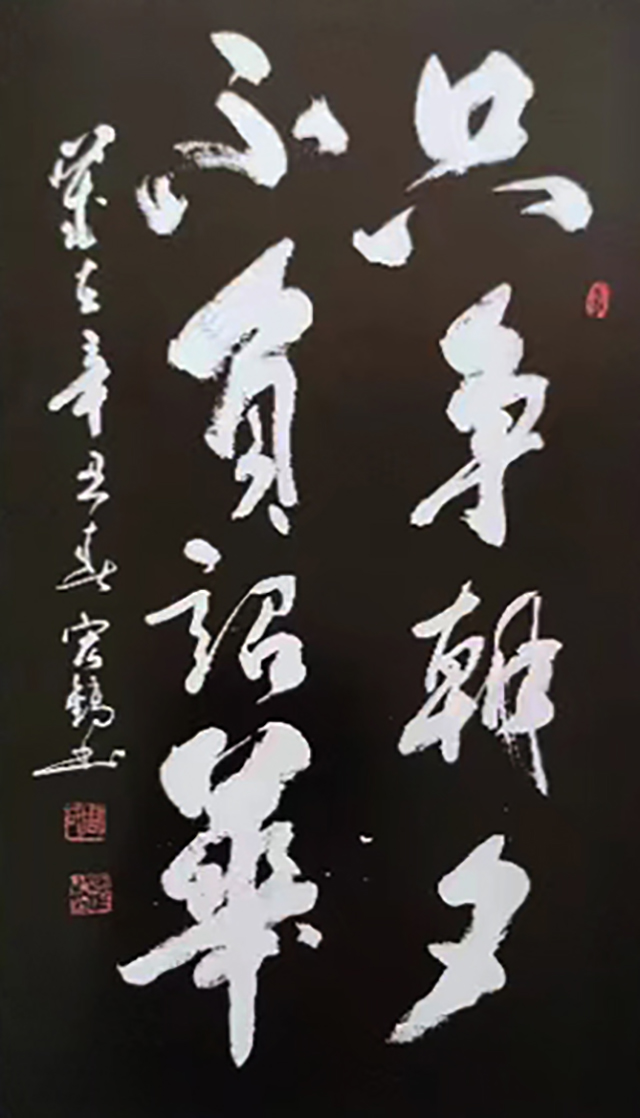 只争朝夕
不负韶华
岁在辛丑春宏鹤书